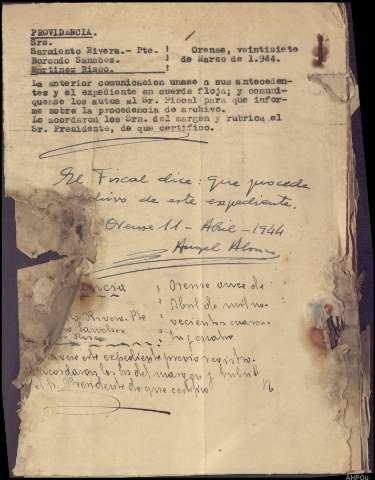 PROVIDENCIA.
Srs.
Sarmiento Rivera.- Pte. : Orense, veintisiete
Borondo Sanchez. : de Marzo de 1.944.
Martinez Risco. :
La anterior comunicacion unase a sus anteceden-
tes y el expediente en cuerda floja; y comuni-
quense los autos al Sr. Fiscal para que infor-
me sobre la procedencia de archivo.
Lo acordaron los Srs. del margen y rubrica el
Sr. Presidente, de que certifico.
El Fiscal dice: que procede
de este expediente.
Orense 11 - Abril - 1944
Angel
Orense once de
Abril de mil no-
Rivera. Pte vecientos cuaren-
Sanchez
este expediente previo registro.
acordaron los Srs del margen y rubrica
el Sr. Presidente de que certifico
AHPOu